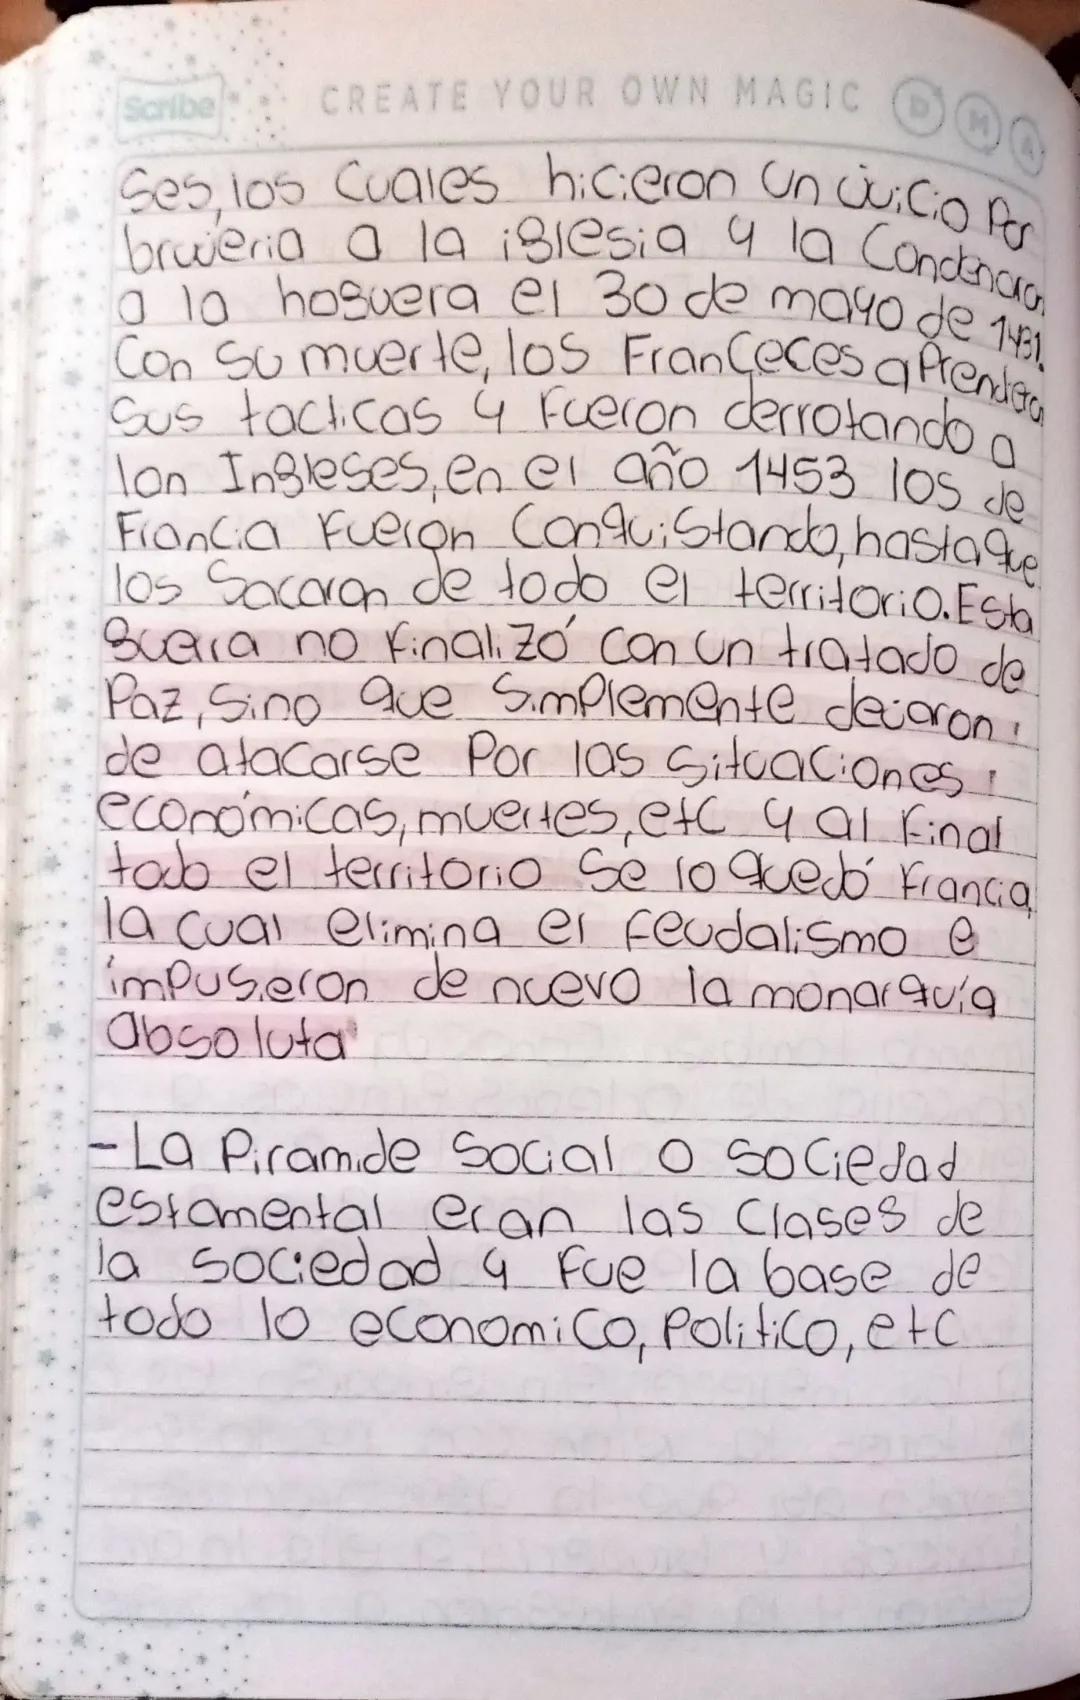 Scribe CREATE YOUR OWN MAGIC D M
ses, los cuales hicieron un juicio por
brujeria a la iglesia y la condenaron
a la hoguera el 30 de mayo de 1431.
Con su muerte, los Franceces aprendieron
sus tacticas y fueron derrotando a
lon Ingleses, en el año 1453 los de
Francia fueron conquistando, hasta que
los sacaron de todo el territorio. Esta
guerra no finalizó con un tratado de
Paz, sino que simplemente dejaron
de atacarse por las situaciones
económicas, muertes, etc y al final
todo el territorio se lo quedó Francia,
la cual elimina el feudalismo e
impusieron de nuevo la monarquía
absoluta
- La Piramide Social o sociedad
estamental eran las clases de
la sociedad y fue la base de
todo lo economico, politico, etc